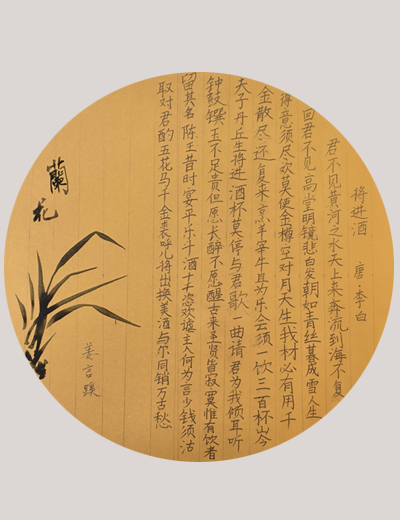 将进酒 唐·李白
君不见黄河之水天上来奔流到海不复
回君不见高堂明镜悲白发朝如青丝暮成雪人生
得意须尽欢莫使金樽空对月天生我材必有用千
金散尽还复来烹羊宰牛且为乐会须一饮三百杯岑
夫子丹丘生将进酒杯莫停与君歌一曲请君为我倾耳听
钟鼓馔玉不足贵但愿长醉不愿醒古来圣贤皆寂寞惟有饮者
留其名陈王昔时宴平乐斗酒十千恣欢谑主人何为言少钱须沽
取对君酌五花马千金裘呼儿将出换美酒与尔同销万古愁
蘭花
姜言蹊